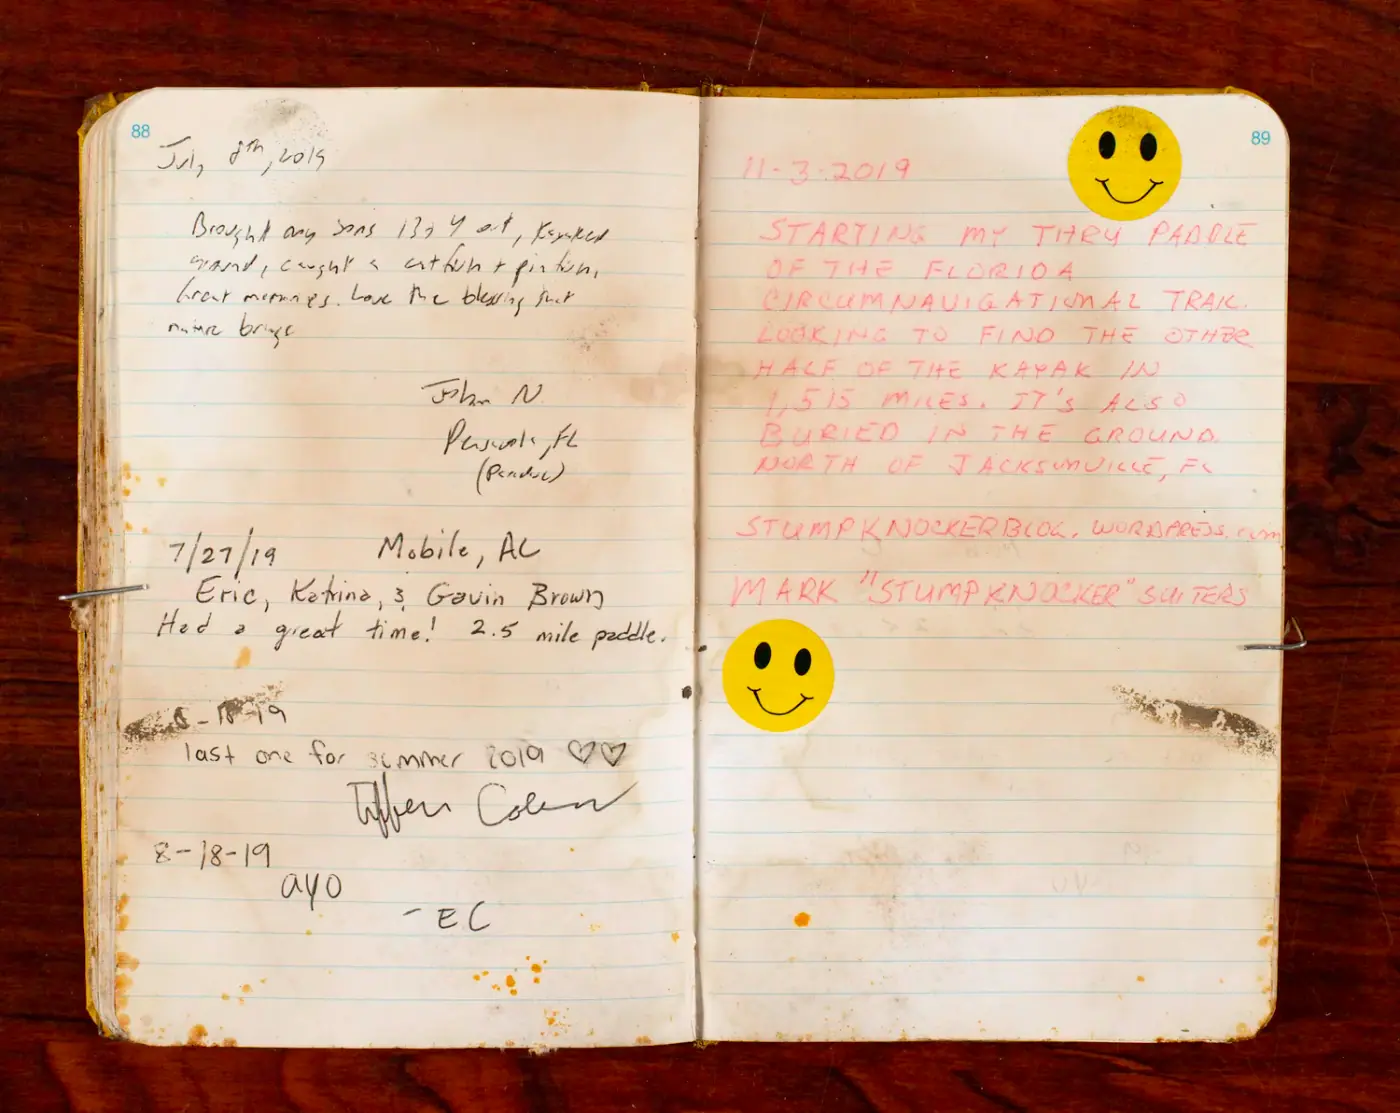 88
July 8th, 2019
Brought my sons 13 & 4 out, Kayaked
around, caught a catfish + pinfish,
Great memories. Love the blessing that
nature brings
John N.
Pensacola, FL
(Paradise)
7/27/19 Mobile, AL
Eric, Katrina, & Gavin Brown
Had a great time! 2.5 mile paddle.
8-18-19
last one for summer 2019 ♡♡
8-18-19
ayo
- EC
89
11-3-2019
STARTING MY THRU PADDLE
OF THE FLORIDA
CIRCUMNAVIGATIONAL TRAIL.
LOOKING TO FIND THE OTHER
HALF OF THE KAYAK IN
1,515 MILES. IT'S ALSO
BURIED IN THE GROUND
NORTH OF JACKSONVILLE, FL
STUMPKNOCKERBLOG.WORDPRESS.COM
MARK "STUMPKNOCKER" SUITERS